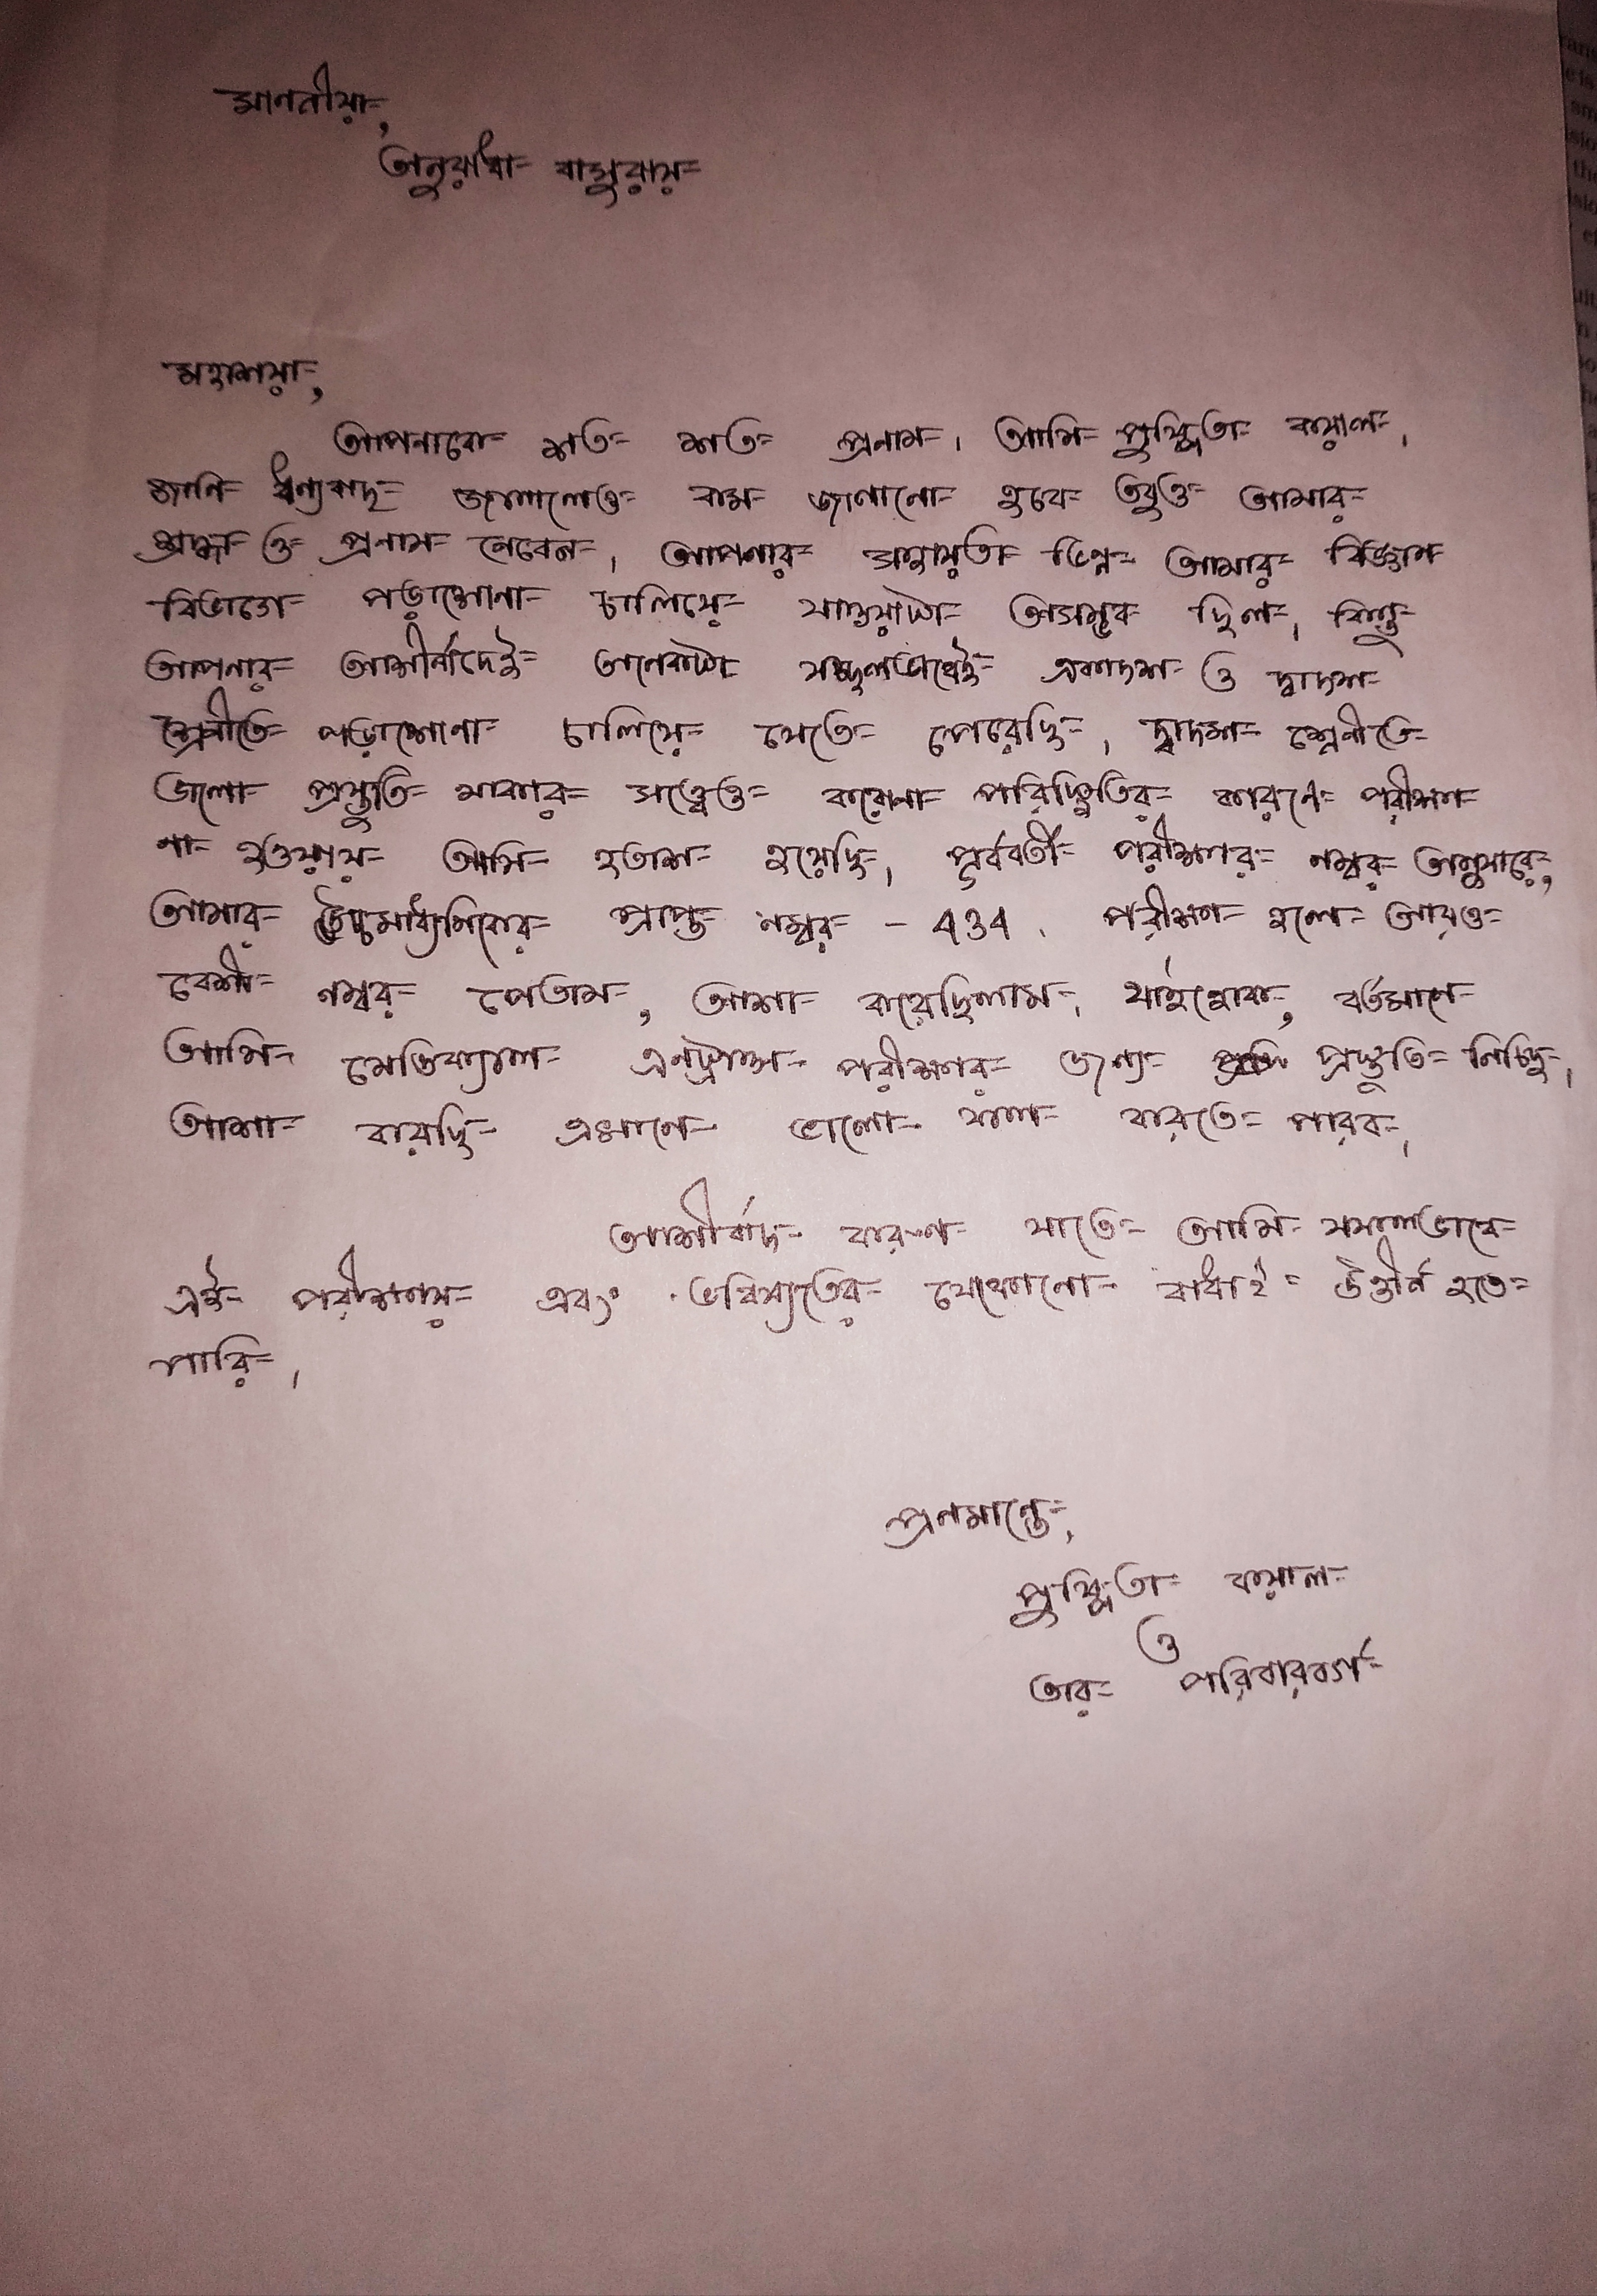 মাননীয়া,
অনুরাধা বাসুরায়
মহাশয়া,
আপনাকে শত শত প্রনাম। আমি পুষ্পিতা কয়াল।
জানি ধন্যবাদ জানালেও কম জানানো হবে তবুও আমার
শ্রদ্ধা ও প্রনাম নেবেন। আপনার সহায়তা ভিন্ন আমার বিজ্ঞান
বিভাগে পড়াশোনা চালিয়ে যাওয়াটা অসম্ভব ছিল। কিন্তু
আপনার আশীর্বাদেই অনেকটা সচ্ছলভাবেই একাদশ ও দ্বাদশ
শ্রেনীতে পড়াশোনা চালিয়ে যেতে পেরেছি। দ্বাদশ শ্রেনীতে
ভালো প্রস্তুতি থাকার সত্ত্বেও করোনা পরিস্থিতির কারণে পরীক্ষা
না হওয়ায় আমি হতাশ হয়েছি। পূর্ববর্তী পরীক্ষার নম্বর অনুসারে,
আমার উচ্চমাধ্যমিকের প্রাপ্ত নম্বর - 434. পরীক্ষা হলে আরও
বেশী নম্বর পেতাম, আশা করেছিলাম। যাইহোক, বর্তমানে
আমি মেডিক্যাল এনট্রান্স পরীক্ষার জন্য প্রস্তুতি নিচ্ছি।
আশা করছি এখানে ভালো ফল করতে পারব।
আশীর্বাদ করুন যাতে আমি সফলভাবে
এই পরীক্ষায় এবং ভবিষ্যতের যেকোনো বাধাই উত্তীর্ন হতে
পারি।
প্রনমান্তে,
পুষ্পিতা কয়াল
ও
তার পরিবারবর্গ